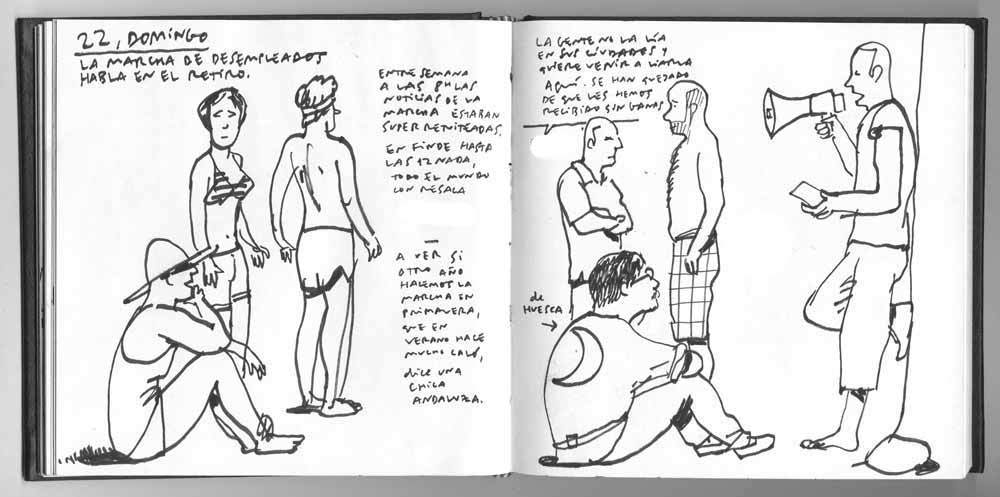 22, DOMINGO
LA MARCHA DE DESEMPLEADOS
HABLA EN EL RETIRO.
ENTRE SEMANA
A LAS 8H LAS
NOTICIAS DE LA
MARCHA ESTABAN
SUPER RETUITEADAS.
EN FINDE HASTA
LAS 12 NADA,
TODO EL MUNDO
CON RESACA
A VER SI
OTRO AÑO
HACEMOS LA
MARCHA EN
PRIMAVERA,
QUE EN
VERANO HACE
MUCHO CALÓ,
DICE UNA
CHICA
ANDALUZA.
LA GENTE NO LA LÍA
EN SUS CIUDADES Y
QUIERE VENIR A LIARLA
AQUÍ. SE HAN QUEJADO
DE QUE LES HEMOS
RECIBIDO SIN GANAS
de
HUESCA